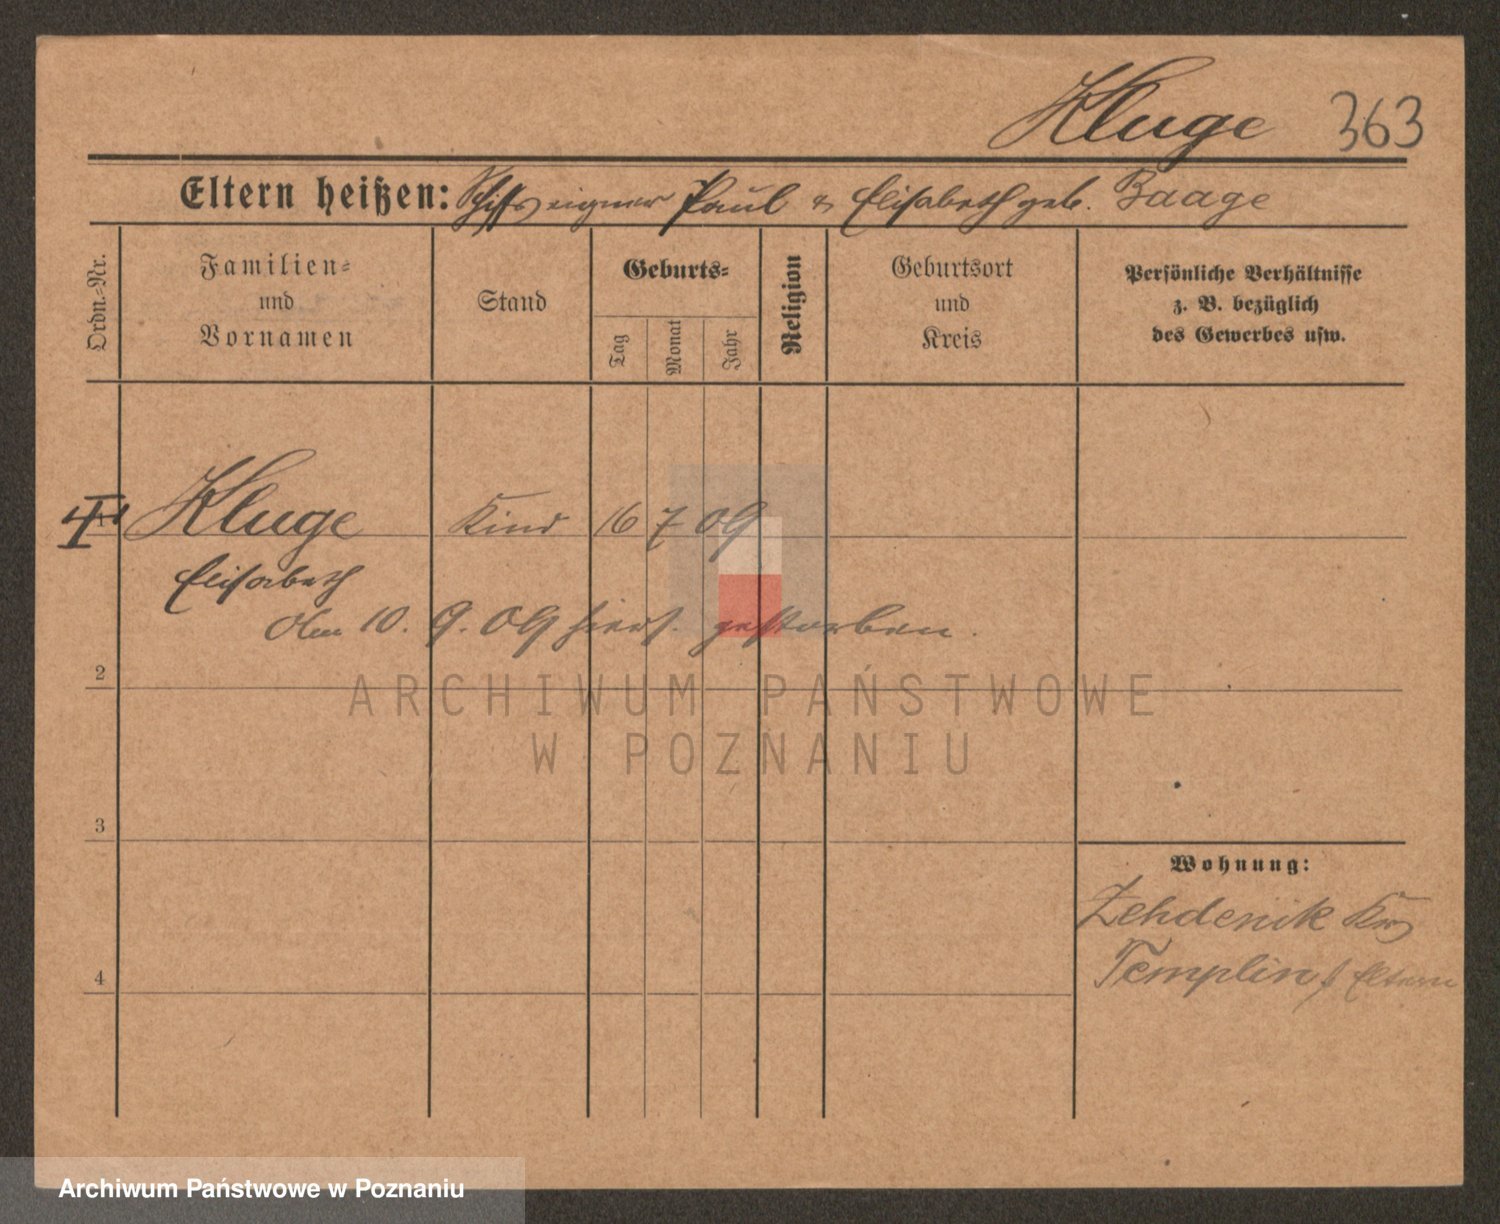 Kluge 363
Eltern heißen: Schiffseigner Paul & Elisabeth geb. Baage
Ordn.-Nr.
Familien-
und
Vornamen
Stand
Geburts-
Tag
Monat
Jahr
Religion
Geburtsort
und
Kreis
Persönliche Verhältnisse
z. B. bezüglich
des Gewerbes usw.
1 Kluge Kind 16 7 09
Elisabeth
Am 10. 9. 09 hiers. gestorben.
2
ARCHIWUM PAŃSTWOWE
W POZNANIU
3
Wohnung:
Zehdenik Krs
Templin Eltern
4
Archiwum Państwowe w Poznaniu